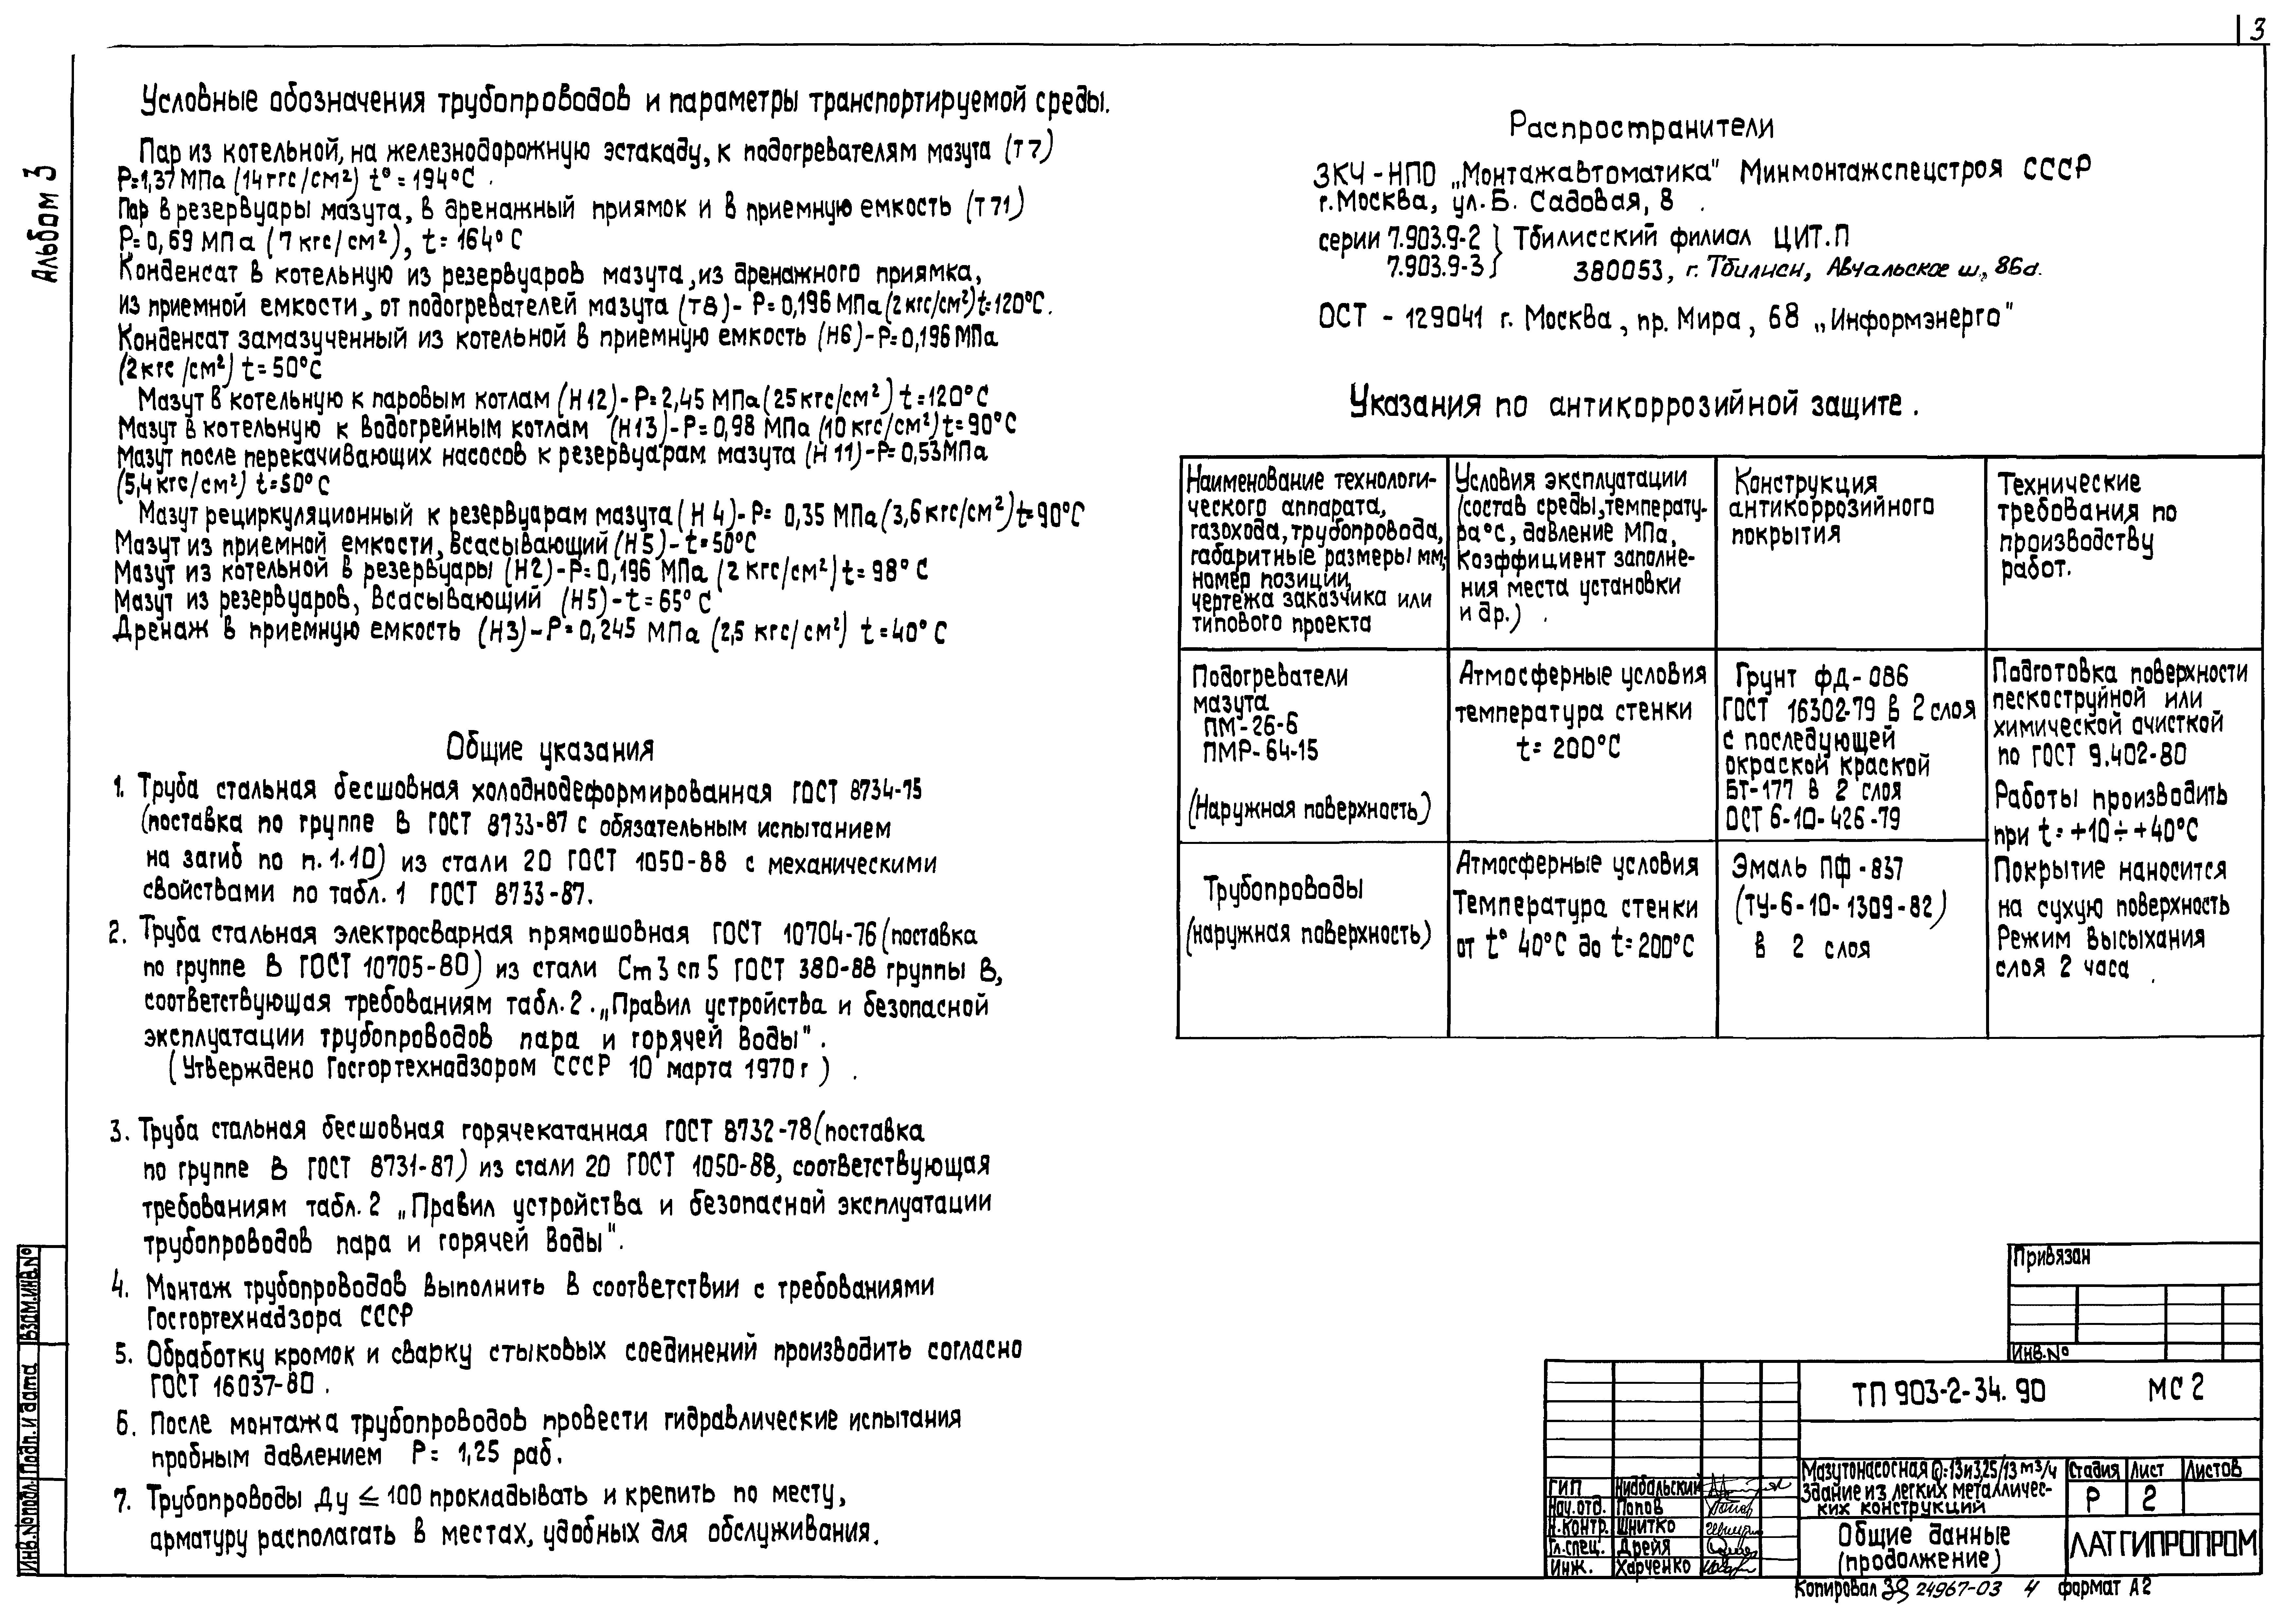 3
Альбом 3
Условные обозначения трубопроводов и параметры транспортируемой среды.
Пар из котельной, на железнодорожную эстакаду, к подогревателям мазута (Т7)
Р=1,37 МПа (14 ггс/см²) t°=194°С.
Пар в резервуары мазута, в дренажный приямок и в приемную емкость (Т71)
Р=0,69 МПа (7 кгс/см²), t=164°С
Конденсат в котельную из резервуаров мазута, из дренажного приямка,
из приемной емкости, от подогревателей мазута (Т8)- Р=0,196 МПа (2 кгс/см²) t=120°С.
Конденсат замазученный из котельной в приемную емкость (Н6)-Р=0,196 МПа
(2 кгс/см²) t=50°С
Мазут в котельную к паровым котлам (Н12)-Р=2,45 МПа (25 кгс/см²) t=120°С
Мазут в котельную к водогрейным котлам (Н13)-Р=0,98 МПа (10 кгс/см²) t=90°С
Мазут после перекачивающих насосов к резервуарам мазута (Н11)-Р=0,53 МПа
(5,4 кгс/см²) t=50°С
Мазут рециркуляционный к резервуарам мазута (Н4)-Р= 0,35 МПа (3,6 кгс/см²) t=90°С
Мазут из приемной емкости, всасывающий (Н5)-t=50°С
Мазут из котельной в резервуары (Н2)-Р=0,196 МПа (2 кгс/см²) t=98°С
Мазут из резервуаров, всасывающий (Н5)-t=65°С
Дренаж в приемную емкость (Н3)-Р=0,245 МПа (2,5 кгс/см²) t=40°С
Общие указания
1. Труба стальная бесшовная холоднодеформированная ГОСТ 8734-75
(поставка по группе В ГОСТ 8733-87 с обязательным испытанием
на загиб по п.1.10) из стали 20 ГОСТ 1050-88 с механическими
свойствами по табл. 1 ГОСТ 8733-87.
2. Труба стальная электросварная прямошовная ГОСТ 10704-76 (поставка
по группе В ГОСТ 10705-80) из стали Ст3 сп5 ГОСТ 380-88 группы В,
соответствующая требованиям табл. 2. „Правил устройства и безопасной
эксплуатации трубопроводов пара и горячей воды".
(Утверждено Госгортехнадзором СССР 10 марта 1970г).
3. Труба стальная бесшовная горячекатанная ГОСТ 8732-78 (поставка
по группе В ГОСТ 8731-87) из стали 20 ГОСТ 1050-88, соответствующая
требованиям табл. 2 „Правил устройства и безопасной эксплуатации
трубопроводов пара и горячей воды".
4. Монтаж трубопроводов выполнить в соответствии с требованиями
Госгортехнадзора СССР
5. Обработку кромок и сварку стыковых соединений производить согласно
ГОСТ 16037-80.
6. После монтажа трубопроводов провести гидравлические испытания
пробным давлением Р= 1,25 раб.
7. Трубопроводы Ду ≤ 100 прокладывать и крепить по месту,
арматуру располагать в местах, удобных для обслуживания.
Распространители
ЗКЧ-НПО „Монтажавтоматика" Минмонтажспецстроя СССР
г. Москва, ул. Б. Садовая, 8.
серии 7.903.9-2 } Тбилисский филиал ЦИТ.П
7.903.9-3 } 380053, г. Тбилиси, Авчальское ш., 86а.
ОСТ - 129041 г. Москва, пр. Мира, 68 „Информэнерго"
Указания по антикоррозийной защите.
Наименование технологи-
ческого аппарата,
газохода, трубопровода,
габаритные размеры мм,
номер позиции,
чертежа заказчика или
типового проекта
Условия эксплуатации
(состав среды, температу-
ра °С, давление МПа,
коэффициент заполне-
ния места установки
и др.)
Конструкция
антикоррозийного
покрытия
Технические
требования по
производству
работ.
Подогреватели
мазута
ПМ-26-6
ПМР-64-15
(Наружная поверхность)
Атмосферные условия
температура стенки
t= 200°С
Грунт ФД-086
ГОСТ 16302-79 в 2 слоя
с последующей
окраской краской
БТ-177 в 2 слоя
ОСТ 6-10-426-79
Подготовка поверхности
пескоструйной или
химической очисткой
по ГОСТ 9.402-80
Работы производить
при t=+10÷+40°С
Покрытие наносится
на сухую поверхность
Режим высыхания
слоя 2 часа
Трубопроводы
(наружная поверхность)
Атмосферные условия
Температура стенки
от t° 40°С до t=200°С
Эмаль ПФ-837
(ТУ-6-10-1309-82)
в 2 слоя
Привязан
Инв.№
ТП 903-2-34.90 МС2
Мазутонасосная Q=13и3,25/13 м³/ч
Здание из легких металличес-
ких конструкций
Стадия Лист Листов
Р 2
Общие данные
(продолжение)
ЛАТГИПРОПРОМ
ГИП Нидбальский
Нач.отд. Попов
Н.контр. Шнитко
Гл.спец. Дрейя
Инж. Харченко
Копировал 24967-03 4 формат А2
Взам.инв.№
Подп. и дата
Инв.№подл.